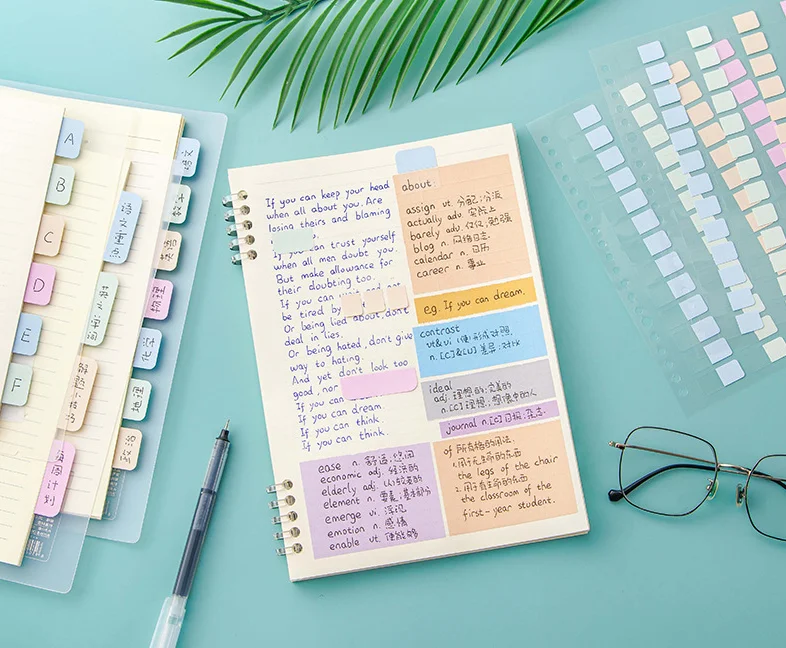 A
B
C
D
E
F
语文
数学
英语
物理
化学
地理
会议
语文重点
周计划
If you can keep your head
when all about you. Are
losing theirs and blaming
If you can trust yourself
when all men doubt you.
But make allowance for
their doubting too.
If you can
be tired by
Or being lied about, don't
deal in lies.
Or being hated, don't give
way to hating.
And yet don't look too
good, nor
If you can
If you can dream.
If you can think.
If you can think.
about:
assign vt. 分配;分派
actually adv. 实际上
barely adv. 仅仅;勉强
blog n. 网络日志
calendar n. 日历
career n. 事业
e.g. If you can dream.
contrast
vt&vi 使形成对照
n. [C]&[U] 差异;对比
ideal
adj. 理想的;完美的
n. [C] 理想;想像中的人
journal n. [C] 日报;杂志
ease n. 舒适;悠闲
economic adj. 经济的
elderly adj. (人)较老的
element n. 要素;基本部分
emerge vi. 浮现
emotion n. 感情
enable vt. 使能够
of 所有格的用法:
1.用于无生命的东西
the legs of the chair
2.用于有生命的东西
the classroom of the
first-year student.